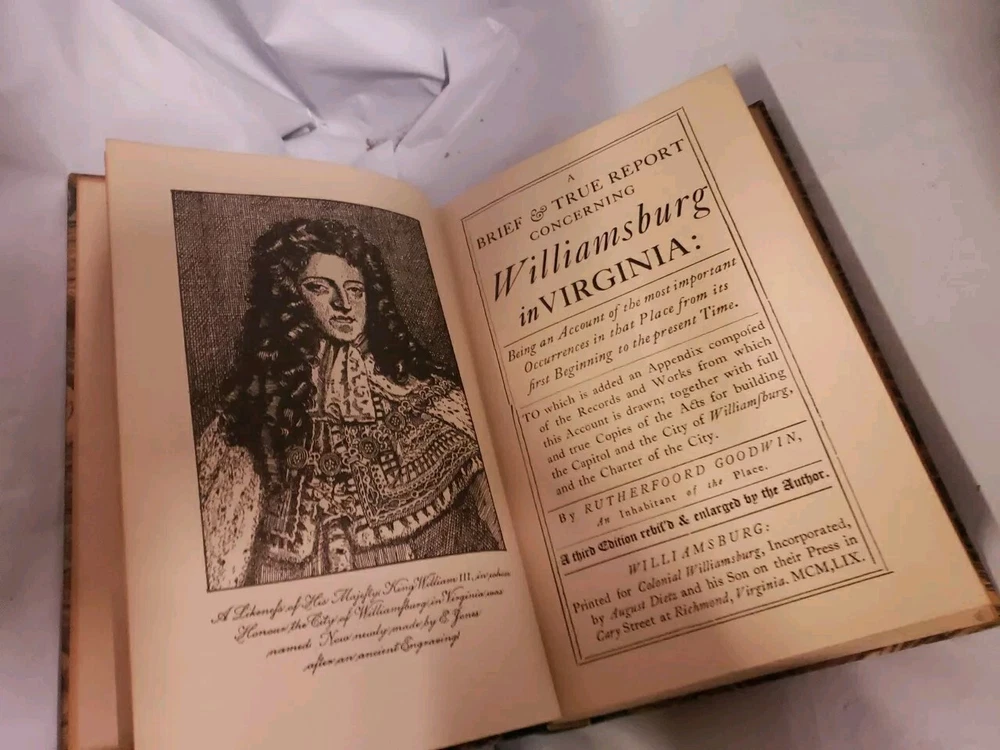 A Likeneſs of His Majeſty, King William III, in whose
Honour the City of Williamſburg in Virginia was
named. Now newly made by E. Jones
after an ancient Engraving
A
BRIEF & TRUE REPORT
CONCERNING
Williamsburg
in VIRGINIA:
Being an Account of the most important
Occurrences in that Place from its
first Beginning to the present Time.
TO which is added an Appendix compoſed
of the Records and Works from which
this Account is drawn; together with full
and true Copies of the Acts for building
the Capitol and the City of Williamſburg,
and the Charter of the City.
By RUTHERFOORD GOODWIN,
An Inhabitant of the Place.
A third Edition reviſ'd & enlarged by the Author.
WILLIAMSBURG:
Printed for Colonial Williamsburg, Incorporated,
by August Dietz and his Son on their Press in
Cary Street at Richmond, Virginia. MCM,LIX.